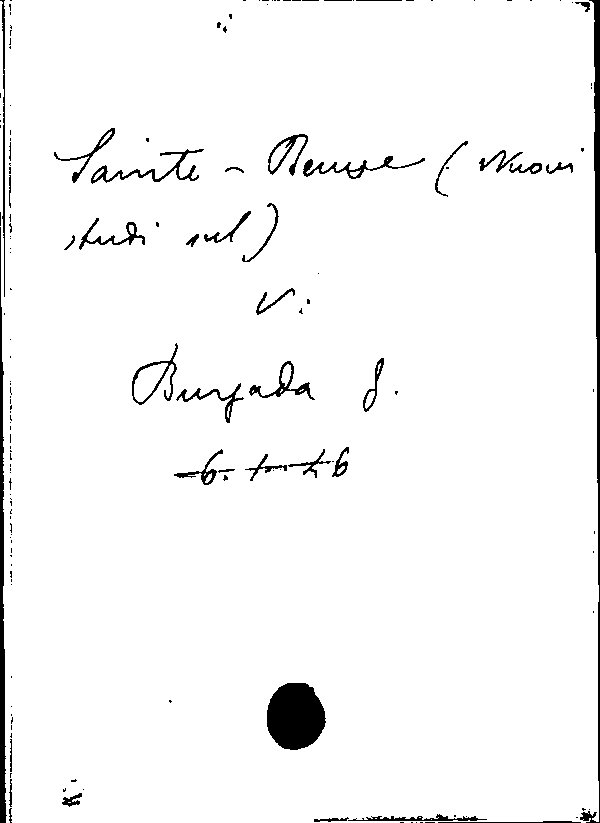 Sainte - Beuve (Nuovi
studi sul)
V:
Burgada G.
6. 1. 46